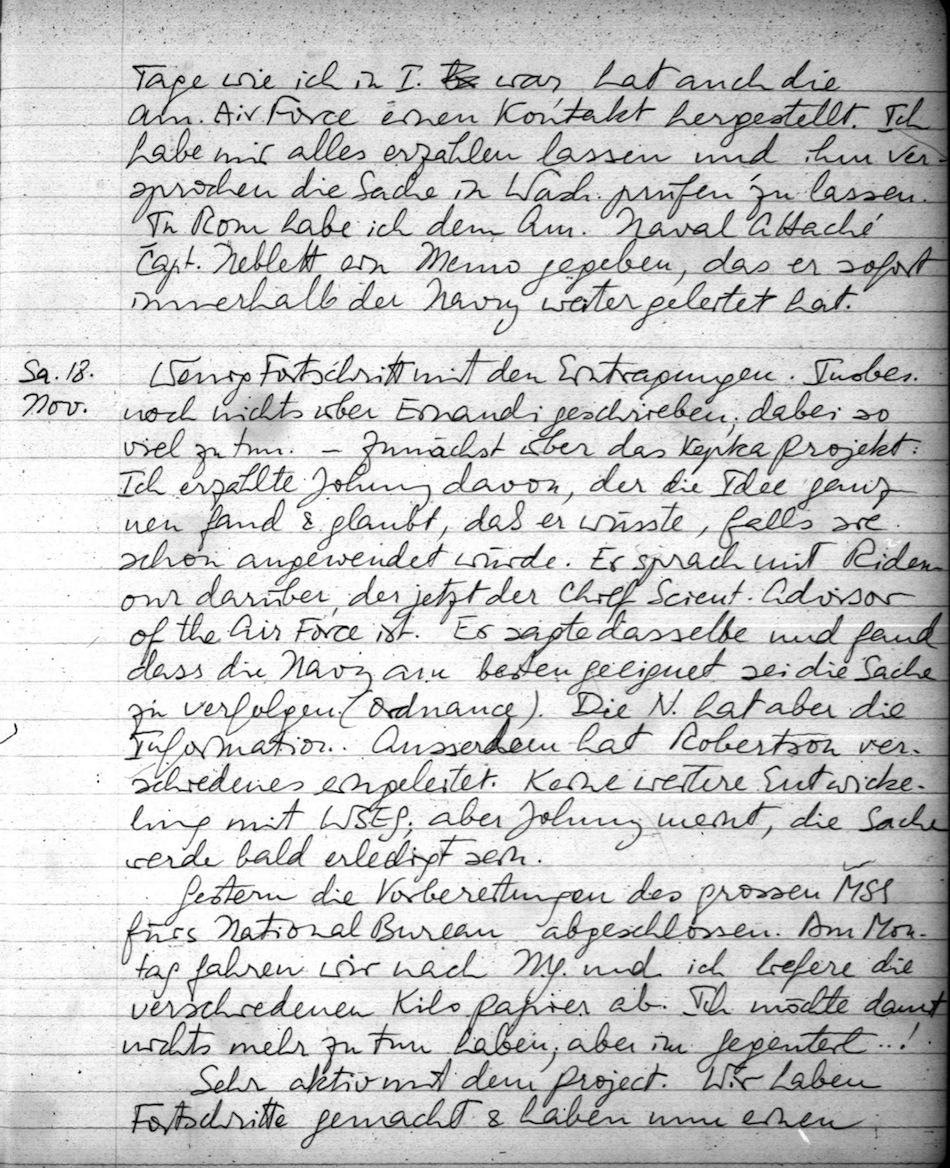 Tage wie ich in I. war, hat auch die
Am. Air Force einen Kontakt hergestellt. Ich
habe mir alles erzählen lassen und ihm ver-
sprochen die Sache in Wash. prüfen zu lassen.
In Rom habe ich dem Am. Naval Attaché
Capt. Neblett ein Memo gegeben, das er sofort
innerhalb der Navy weitergeleitet hat.
Sa. 18. Wenig Fortschritt mit den Eintragungen. Insbes.
Nov. noch nichts über Einaudi geschrieben, dabei so
viel zu tun. – Zunächst über das Kepka projekt:
Ich erzählte Johnny davon, der die Idee ganz
neu fand & glaubt, daß er wüsste, falls sie
schon angewendet würde. Er sprach mit Riden-
our darüber, der jetzt der Chief Scient. Advisor
of the Air Force ist. Er sagte dasselbe und fand
dass die Navy am besten geeignet sei die Sache
zu verfolgen (Ordnance). Die N. hat aber die
Information. Ausserdem hat Robertson ver-
schiedenes eingeleitet. Keine weitere Entwicke-
lung mit WSEG, aber Johnny meint, die Sache
werde bald erledigt sein.
Gestern die Vorbereitungen des grossen MSS
fürs National Bureau abgeschlossen. Am Mon-
tag fahren wir nach NY. und ich liefere die
verschiedenen Kilo papier ab. Ich möchte damit
nichts mehr zu tun haben, aber im Gegenteil...!
Sehr aktiv mit dem Project. Wir haben
Fortschritte gemacht & haben nun einen